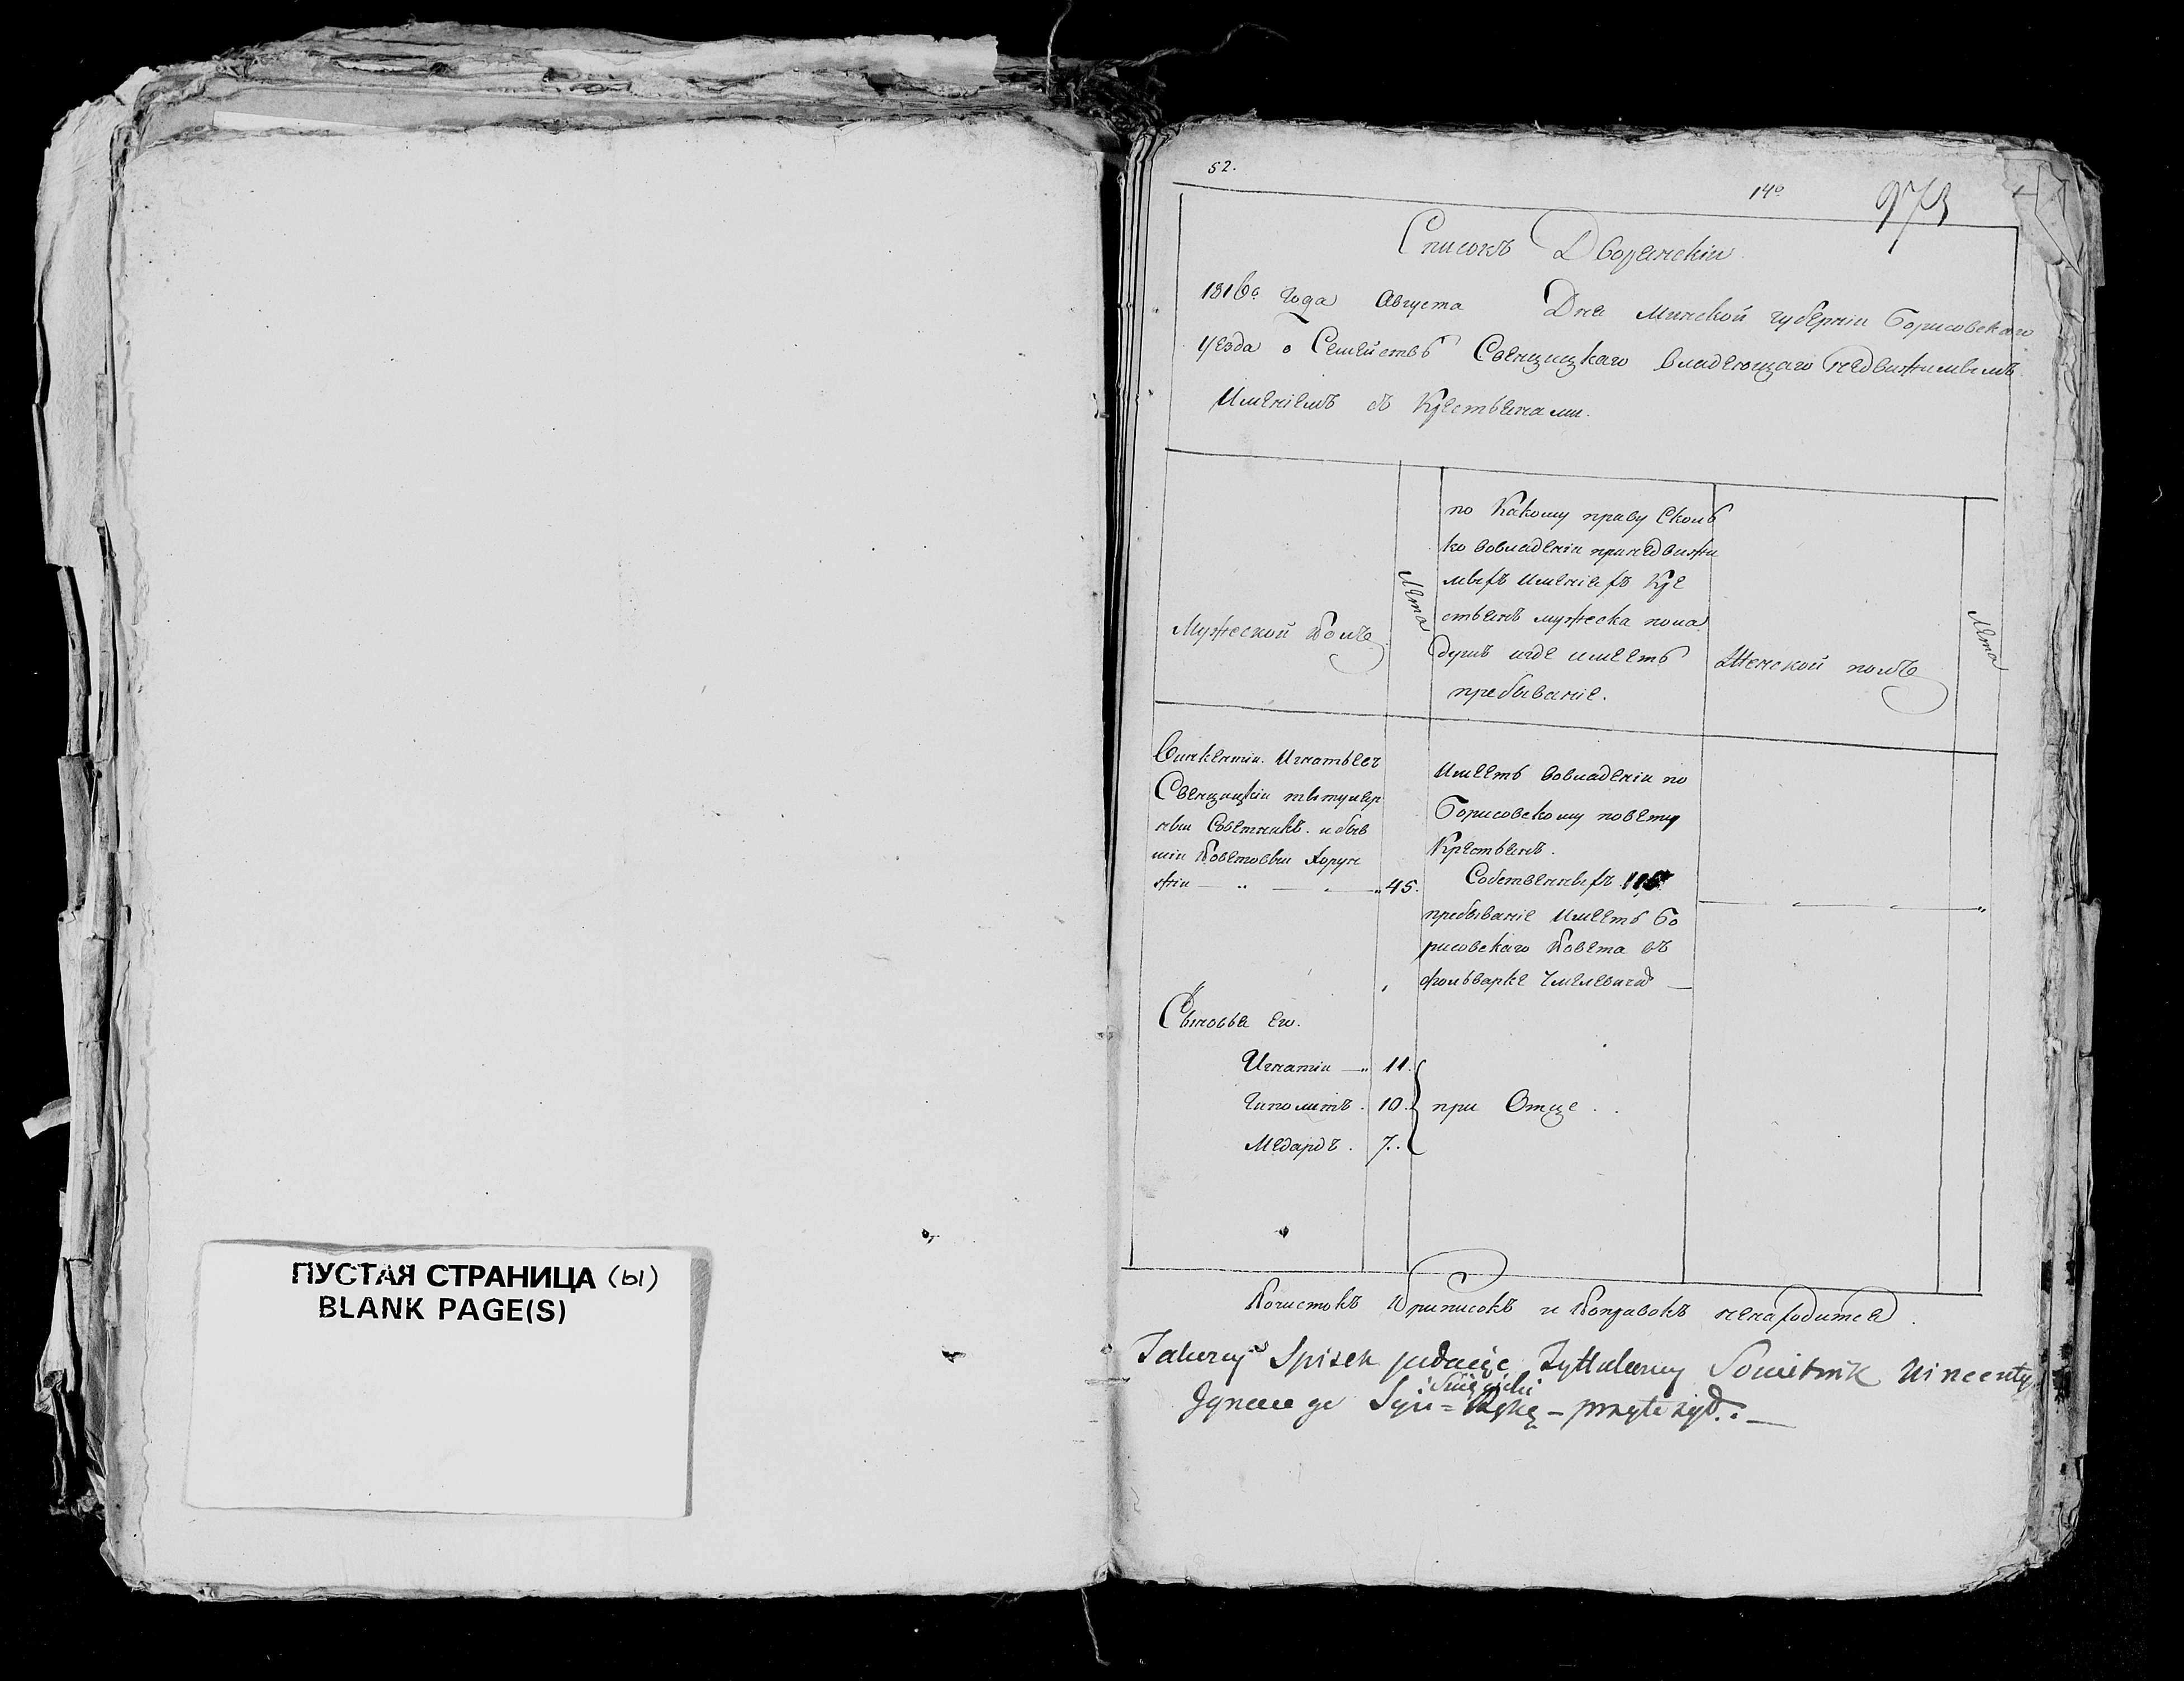 ПУСТАЯ СТРАНИЦА (ы)
BLANK PAGE(S)
52.
14º
973
Списокъ Дворянскiи
1816го года Августа Дня Минской губернiи Борисовскаго
уезда о Семействѣ Свенцицкаго владеющаго недвижимымъ
Имениемъ съ Крестьянами.
Мужеской Полъ
Лета
по Какому праву Сколь
ко вовладенiи принедвижи
мыхъ именiяхъ Кре
стьянъ мужеска пола
душъ игде имеетъ
пребыванiе.
Женской полъ
Лета
Викентiи Игнатьевъ
Свенцицкiи титуляр
ныи Советникъ. и быв
шiи Поветовыи Хорун
жiи 45.
Имеетъ вовладенiи по
Борисовскому повету
Крестьянъ.
Собственныхъ
пребыванiе Имеетъ Бо
рисовскаго Повета въ
фольварке
Сыновья его.
Игнатiи 11.
Гиполитъ. 10. при Отце.
Медардъ. 7.
Почистокъ Приписокъ и Поправокъ ненаходится.
Takowy Spisek podaiąc Tyttularny Sowietnik Wincenty
Święcicki
Ignacego Syn = Ręką –